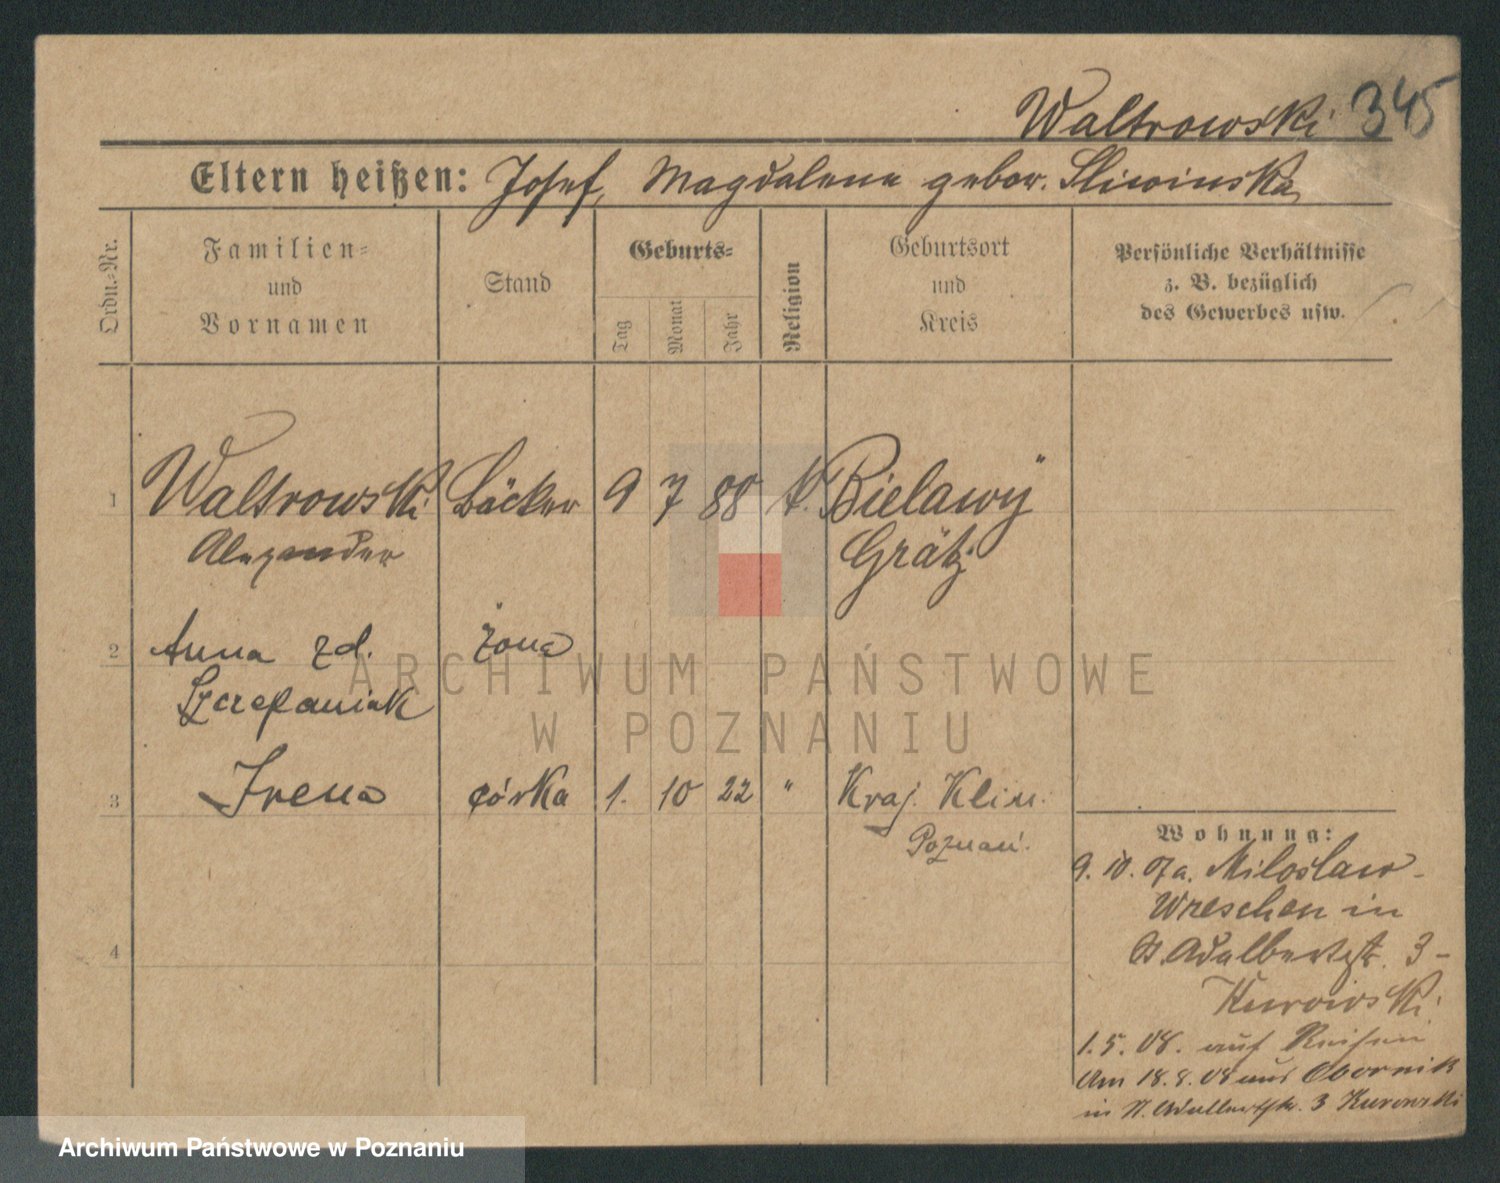 Waltrowski 345
Eltern heißen: Josef, Magdalena gebor. Sliwinska
Ordn.-Nr.
Familien-
und
Vornamen
Stand
Geburts-
Tag
Monat
Jahr
Religion
Geburtsort
und
Kreis
Persönliche Verhältnisse
z. B. bezüglich
des Gewerbes usw.
1 Waltrowski Bäcker 9 7 88 k. Bielawy
Alexander Grätz
2 Anna zd. żona
Szczepaniak
3 Irena córka 1. 10 22 " Kraj. Klin.
Poznań.
4
Wohnung:
9. 10. 07 a. Miloslaw-
Wreschen in
St. Adalbertstr. 3-
Kurowski
1. 5. 08. auf Reisen
Am 18. 8. 08 aus Obornik
in St. Adalbertstr. 3 Kurowski
ARCHIWUM PAŃSTWOWE
W POZNANIU
Archiwum Państwowe w Poznaniu